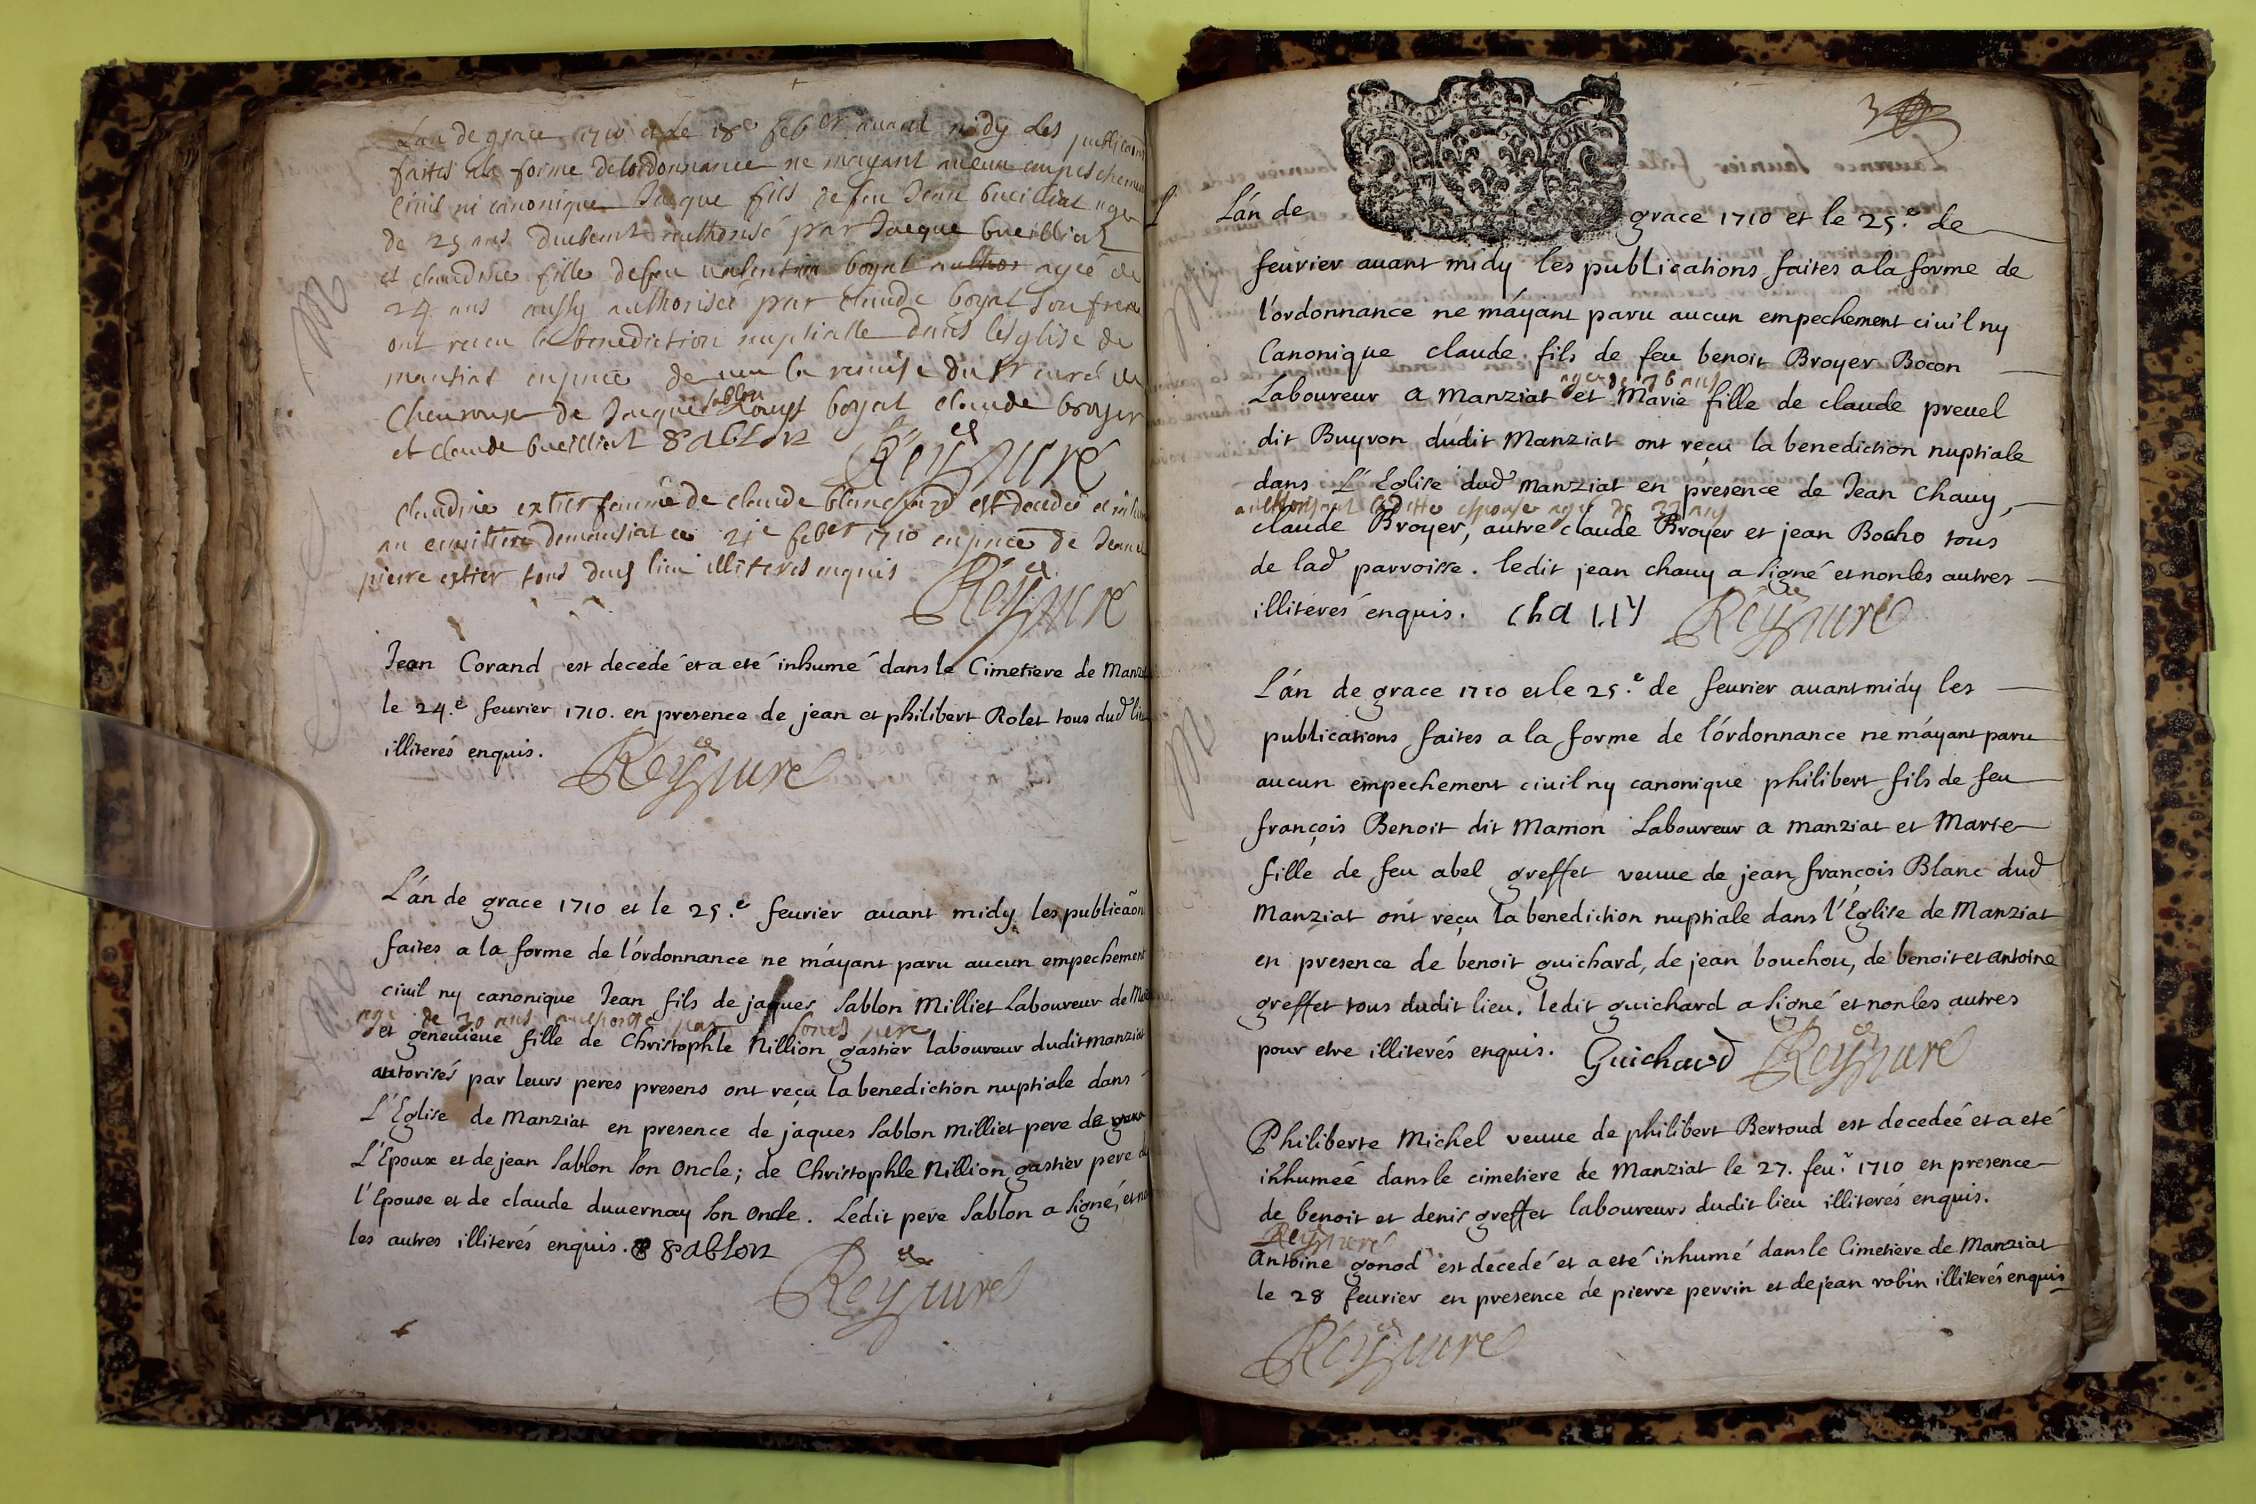 Lan de grace 1710 et Le 18e feber auant midy Les publicaons
faites ala forme delordonnance ne mayant aucun empeschement
Ciuil ni canonique Jacque fils defeu Jean bueilliat age
de 25 ans duebemt authorisé par Jacque bueilliat
et claudine fille defeu ualentin boyat author agée de
24 ans aussy authorisée par claude boyat son frere
ont receu la benediction nuptialle dans léglise de
mantiat de la remise du Sr curé de
Cheuroux de Jacque Sablon boyat claude broyer
et claude bueilliat Sablon
Rey curé
claudine extier femme de claude blanchard est decedée
au cimittiere demansiat ce 21e feber 1710 de
pierre extier tous dud lieu illiteres enquis
Rey curé
Jean Corand est decedé et a eté inhumé dans le Cimetiere de Manziat
le 24.e feurier 1710. en presence de jean et philibert Rolet tous dud lieu
illiterés enquis. Rey curé
L'án de grace 1710 et le 25.e feurier auant midy les publicãon
faites a la forme de l'órdonnance ne máyant paru aucun empechement
ciuil ny canonique Jean fils de jaques Sablon Milliet Laboureur de
age de 30 ans par sond pere
et geneuieue fille de Christophle Nillion gastier laboureur dudit manziat
autorisés par leurs peres presens ont reçu la benediction nuptiale dans
L'Eglise de Manziat en presence de jáques Sablon Milliet pere de
L'Epoux et de jean Sablon son oncle; de Christophle Nillion gastier pere de
l'Epouse et de claude duuernay son oncle. Ledit pere Sablon a signé, et no
les autres illiterés enquis. Sablon
Rey curé
3
L'án de grace 1710 et le 25.e de
feurier auant midy les publications faites a la forme de
l'órdonnance ne máyant paru aucun empechement ciuil ny
Canonique claude fils de feu benoit Broyer Bocon
age de 26 ans
Laboureur a Manziat et Marie fille de claude preuel
dit Buyron dudit Manziat ont reçu la benediction nuptiale
dans L'Eglise dud Manziat en presence de Jean Chauy,
laditte espouse age de 22 ans
claude Broyer, autre claude Broyer et jean Bocho tous
de lad parroisse. ledit jean chauy a signé et non les autres
illiterés enquis. chauy Rey curé
L'án de grace 1710 et le 25.e de feurier auant midy les
publications faites a la forme de l'órdonnance ne máyant paru
aucun empechement ciuil ny canonique philibert fils de feu
françois Benoit dit Mamon Laboureur a manziat et Marie
fille de feu abel greffet veuue de jean françois Blanc dud
Manziat ont reçu la benediction nuptiale dans l'Eglise de Manziat
en presence de benoit guichard, de jean bouchou, de benoit et antoine
greffet tous dudit lieu. ledit guichard a signé et non les autres
pour etre illiterés enquis. Guichard Rey curé
Philiberte Michel veuue de philibert Bertoud est decedeé et a eté
inhumeé dans le cimetiere de Manziat le 27. feu.r 1710 en presence
de benoit et denis greffet laboureurs dudit lieu illiterés enquis.
Rey curé
Antoine gonod est decedé et a eté inhumé dans le Cimetiere de Manziat
le 28 feurier en presence de pierre perrin et de jean robin illiterés enquis
Rey curé